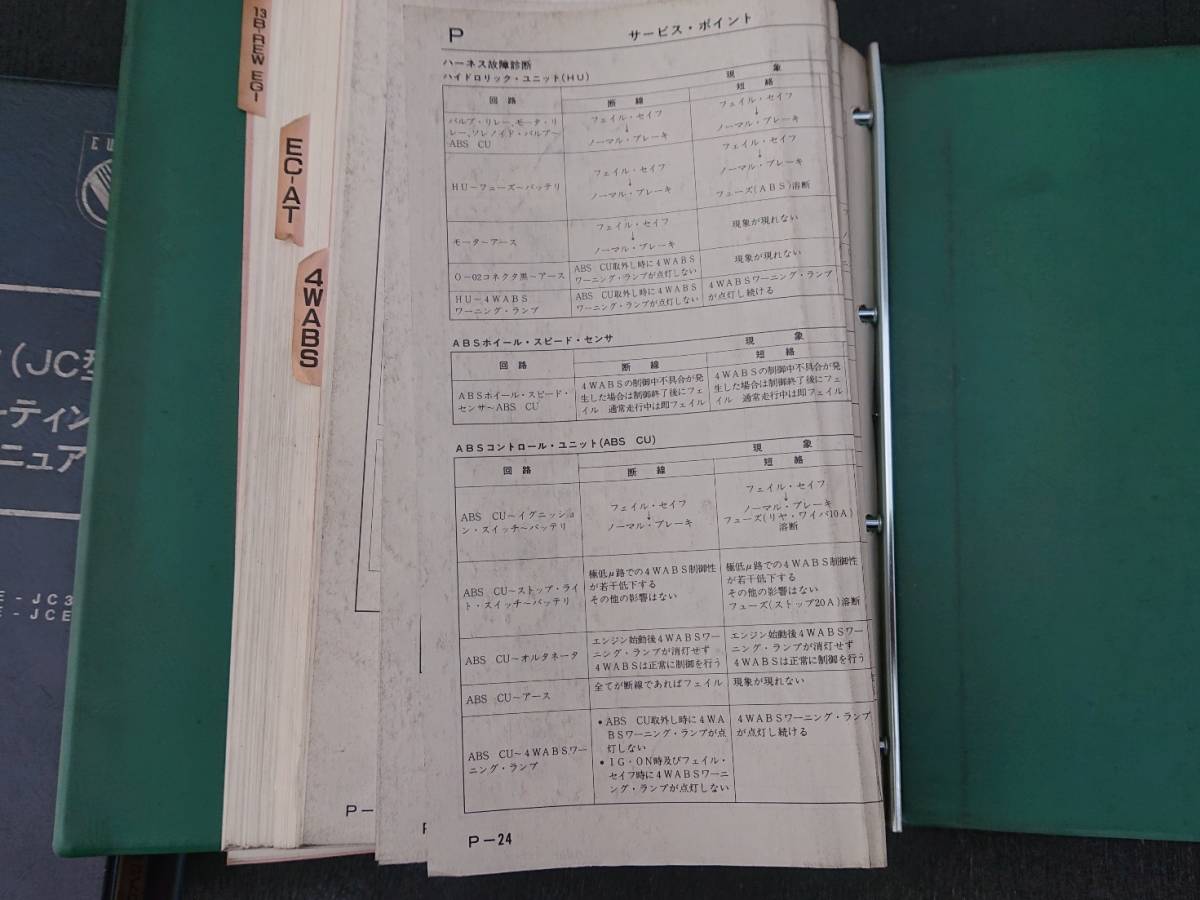 13B-REW EGI
EC-AT
4WABS
EU
(JC型
ーティン
ニュア
E-JC3
E-JCE
P-
P
サービス・ポイント
ハーネス故障診断
ハイドロリック・ユニット(HU)
現 象
回 路
断 線
短 絡
バルブ・リレー、モータ・リ
レー、ソレノイド・バルブ~
ABS CU
フェイル・セイフ
↓
ノーマル・ブレーキ
フェイル・セイフ
↓
ノーマル・ブレーキ
HU~フューズ~バッテリ
フェイル・セイフ
↓
ノーマル・ブレーキ
フェイル・セイフ
↓
ノーマル・ブレーキ
フューズ(ABS)溶断
モータ~アース
フェイル・セイフ
↓
ノーマル・ブレーキ
現象が現れない
O-02コネクタ黒~アース
ABS CU取外し時に4WABS
ワーニング・ランプが点灯しない
現象が現れない
HU~4WABS
ワーニング・ランプ
ABS CU取外し時に4WABS
ワーニング・ランプが点灯しない
4WABSワーニング・ランプ
が点灯し続ける
ABSホイール・スピード・センサ
現 象
回 路
断 線
短 絡
ABSホイール・スピード・
センサ~ABS CU
4WABSの制御中不具合が発
生した場合は制御終了後にフェ
イル 通常走行中は即フェイル
4WABSの制御中不具合が発
生した場合は制御終了後にフェ
イル 通常走行中は即フェイル
ABSコントロール・ユニット(ABS CU)
現 象
回 路
断 線
短 絡
ABS CU~イグニッショ
ン・スイッチ~バッテリ
フェイル・セイフ
↓
ノーマル・ブレーキ
フェイル・セイフ
↓
ノーマル・ブレーキ
フューズ(リヤ・ワイパ10A)
溶断
ABS CU~ストップ・ライ
ト・スイッチ~バッテリ
極低μ路での4WABS制御性
が若干低下する
その他の影響はない
極低μ路での4WABS制御性
が若干低下する
その他の影響はない
フューズ(ストップ20A)溶断
ABS CU~オルタネータ
エンジン始動後4WABSワー
ニング・ランプが消灯せず
4WABSは正常に制御を行う
エンジン始動後4WABSワー
ニング・ランプが消灯せず
4WABSは正常に制御を行う
ABS CU~アース
全てが断線であればフェイル
現象が現れない
ABS CU~4WABSワー
ニング・ランプ
•ABS CU取外し時に4WA
BSワーニング・ランプが点
灯しない
•IG・ON時及びフェイル・
セイフ時に4WABSワーニ
ング・ランプが点灯しない
4WABSワーニング・ランプ
が点灯し続ける
P-24